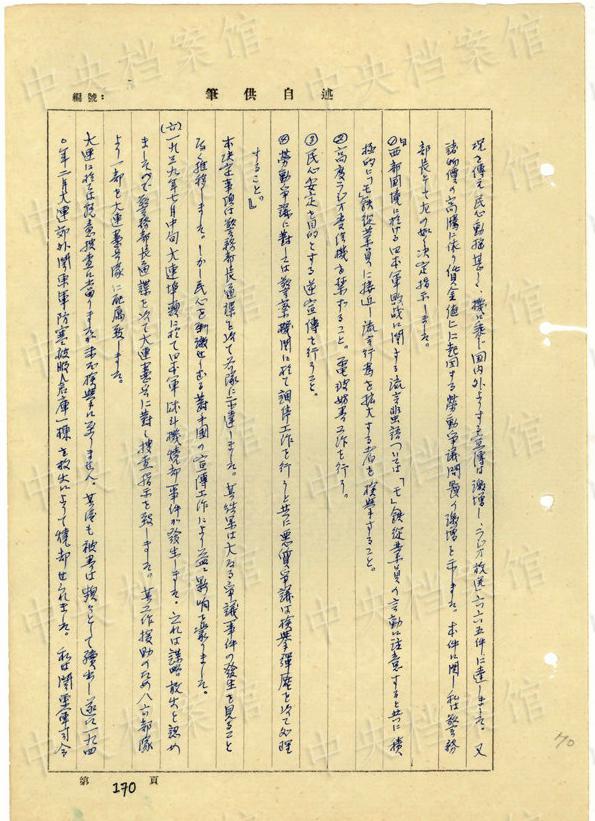 述自供筆
編號：
況を傳え民心動揺甚し、機に乗じ国内外よりする宣傳は激増し、ラジオ放送六六五件に達しました。又
諸物價の高騰に依り賃金値上に起因する勞動爭議問題の激増を示しました。本件に関し私は警務
部長として左の如く決定指示しました。
①西部国境に於ける日本軍敗戦に関する流言蜚語については「モ」鉄從業員の言動に注意すると共に積
極的に「モ」鉄從業員に接近し流言行為を拡大する者を検挙すること。
②高度ラジオ受信機を禁ずること。電波妨害工作を行う。
③民心安定を目的とする逆宣傳を行うこと。
④勞動爭議に対しては警察機関に於て調停工作を行うと共に悪質爭議は検挙彈壓を以て処理
すること。』
本決定事項は警務部長通諜を以て各隊に示達しました。其結果は大なる爭議事件の發生を見ること
なく推移しました。しかし民心を刺戟せる対中国の宣傳工作により益々影響を蒙りました。
(六)一九三九年七月中旬大連埠頭に於て日本軍 機燒却事件が發生しました。之れは謀略放火と認め
ましたので警務部長通諜を以て大連憲兵隊に対し捜査指示を致しました。其工作援助のため八六部隊
より一部を大連憲兵隊に配属致しました。
大連に於ては鋭意捜査に当りましたが未だ検挙に至りません、其後も被害は頻々として續出し遂に一九四
〇年二月大連郊外関東軍防寒被服倉庫一棟を放火によって燒却せられました。私は関東軍司令
第 170 頁
70
中央档案馆